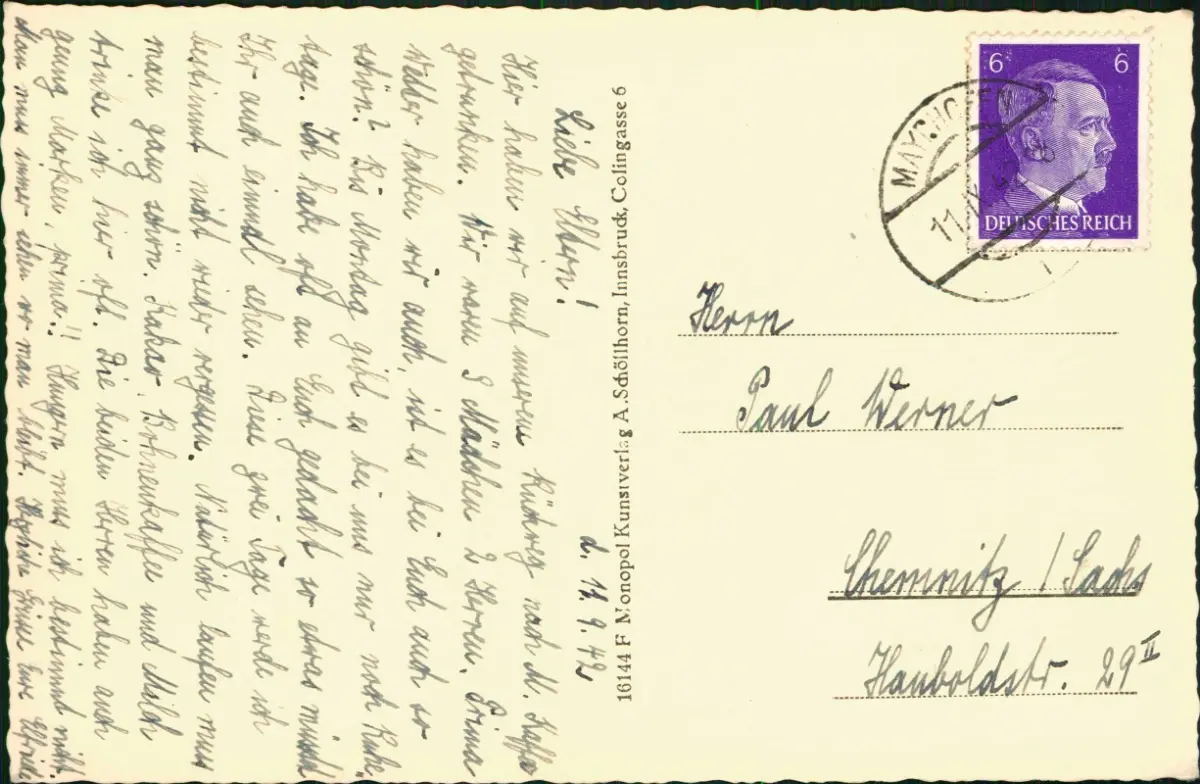 d. 11. 9. 42
Liebe Eltern!
Hier haben wir auf unserem Rückweg nach M. Kaffe
getrunken. Wir waren 3 Mädchen 2 Herren. Prima
Wetter haben wir auch, ist es bei Euch auch so
schön? Bis Montag gibt es bei uns nur noch Ruhe
tage. Ich habe oft an Euch gedacht so etwas müsst
Ihr auch einmal sehen. Diese zwei Tage werde ich
bestimmt nicht wieder vergessen. Natürlich laufen muss
man ganz schön. Kakao, Bohnenkaffee und Milch
trinke ich hier oft. Die beiden Herren haben auch
genug Marken, prima!! Hungern muss ich bestimmt nicht.
Man muss immer sehen wo man bleibt. Herzliche Grüsse Eure Elfriede
16144 F Monopol Kunstverlag A. Schöllhorn, Innsbruck, Colingasse 6
6 6
DEUTSCHES REICH
MAYRHOFEN
11.
Herrn
Paul Werner
Chemnitz / Sachs
Hauboldstr. 29 II